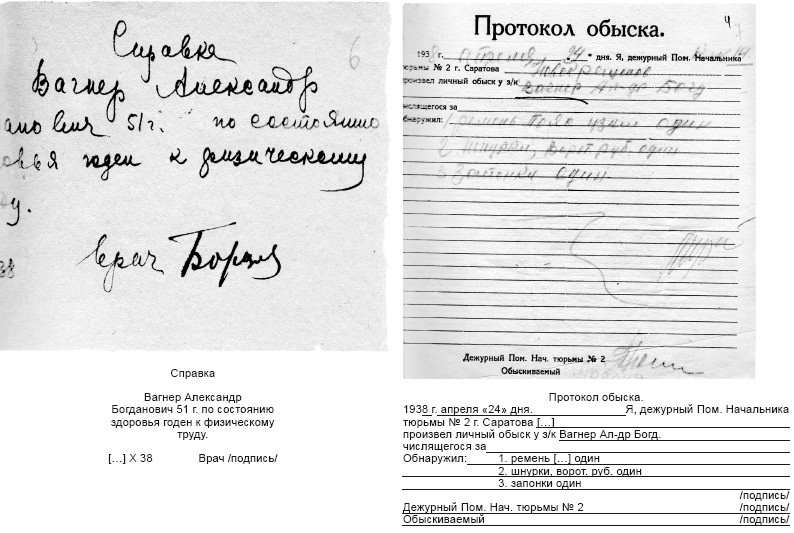 Справка
Вагнер Александр
51 г. по состоянию
овья годен к физическому
у.
врач
38
6
4
Протокол обыска.
193 г. апреля „24" дня. Я, дежурный Пом. Начальника
тюрьмы № 2 г. Саратова
произвел личный обыск у з/к Вагнер Ал-др Богд
числящегося за
обнаружил: 1 ремень один
2 шнурки, ворот. руб. один
3 Запонки один
Дежурный Пом. Нач. тюрьмы № 2
Обыскиваемый
Справка
Вагнер Александр
Богданович 51 г. по состоянию
здоровья годен к физическому
труду.
[...] X 38 Врач /подпись/
Протокол обыска.
1938 г. апреля «24» дня. Я, дежурный Пом. Начальника
тюрьмы № 2 г. Саратова [...]
произвел личный обыск у з/к Вагнер Ал-др Богд.
числящегося за
Обнаружил: 1. ремень [...] один
2. шнурки, ворот. руб. один
3. запонки один
/подпись/
Дежурный Пом. Нач. тюрьмы № 2 /подпись/
Обыскиваемый /подпись/